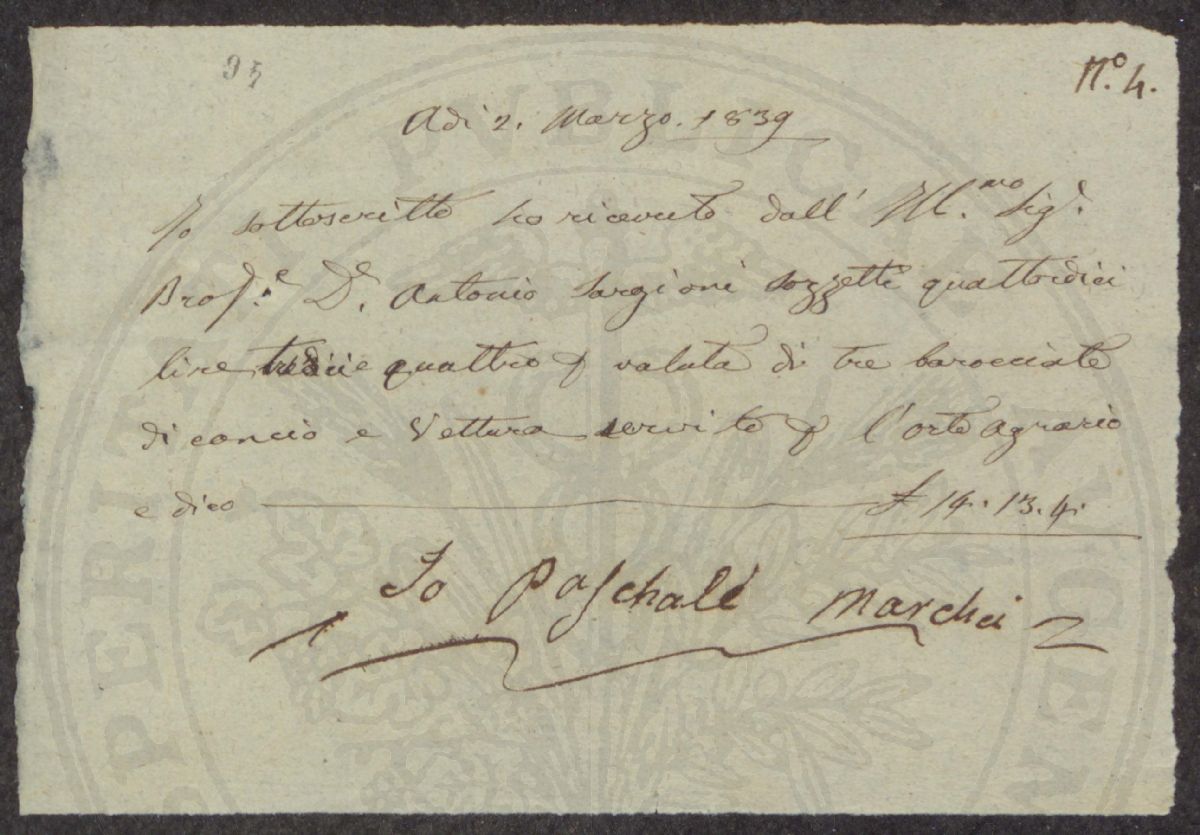 95
N.º 4.
Adi 2. Marzo. 1839
Io sottoscritto ho ricevuto dall' Ill.mo Sig.r
Prof.re D.r Antonio Targioni Tozzetti quattordici
lire tredici e quattro p valuta di tre barocciate
di concio e Vettura servito p l'orto agrario
e dico £ 14. 13. 4.
Io Paschale Marchi